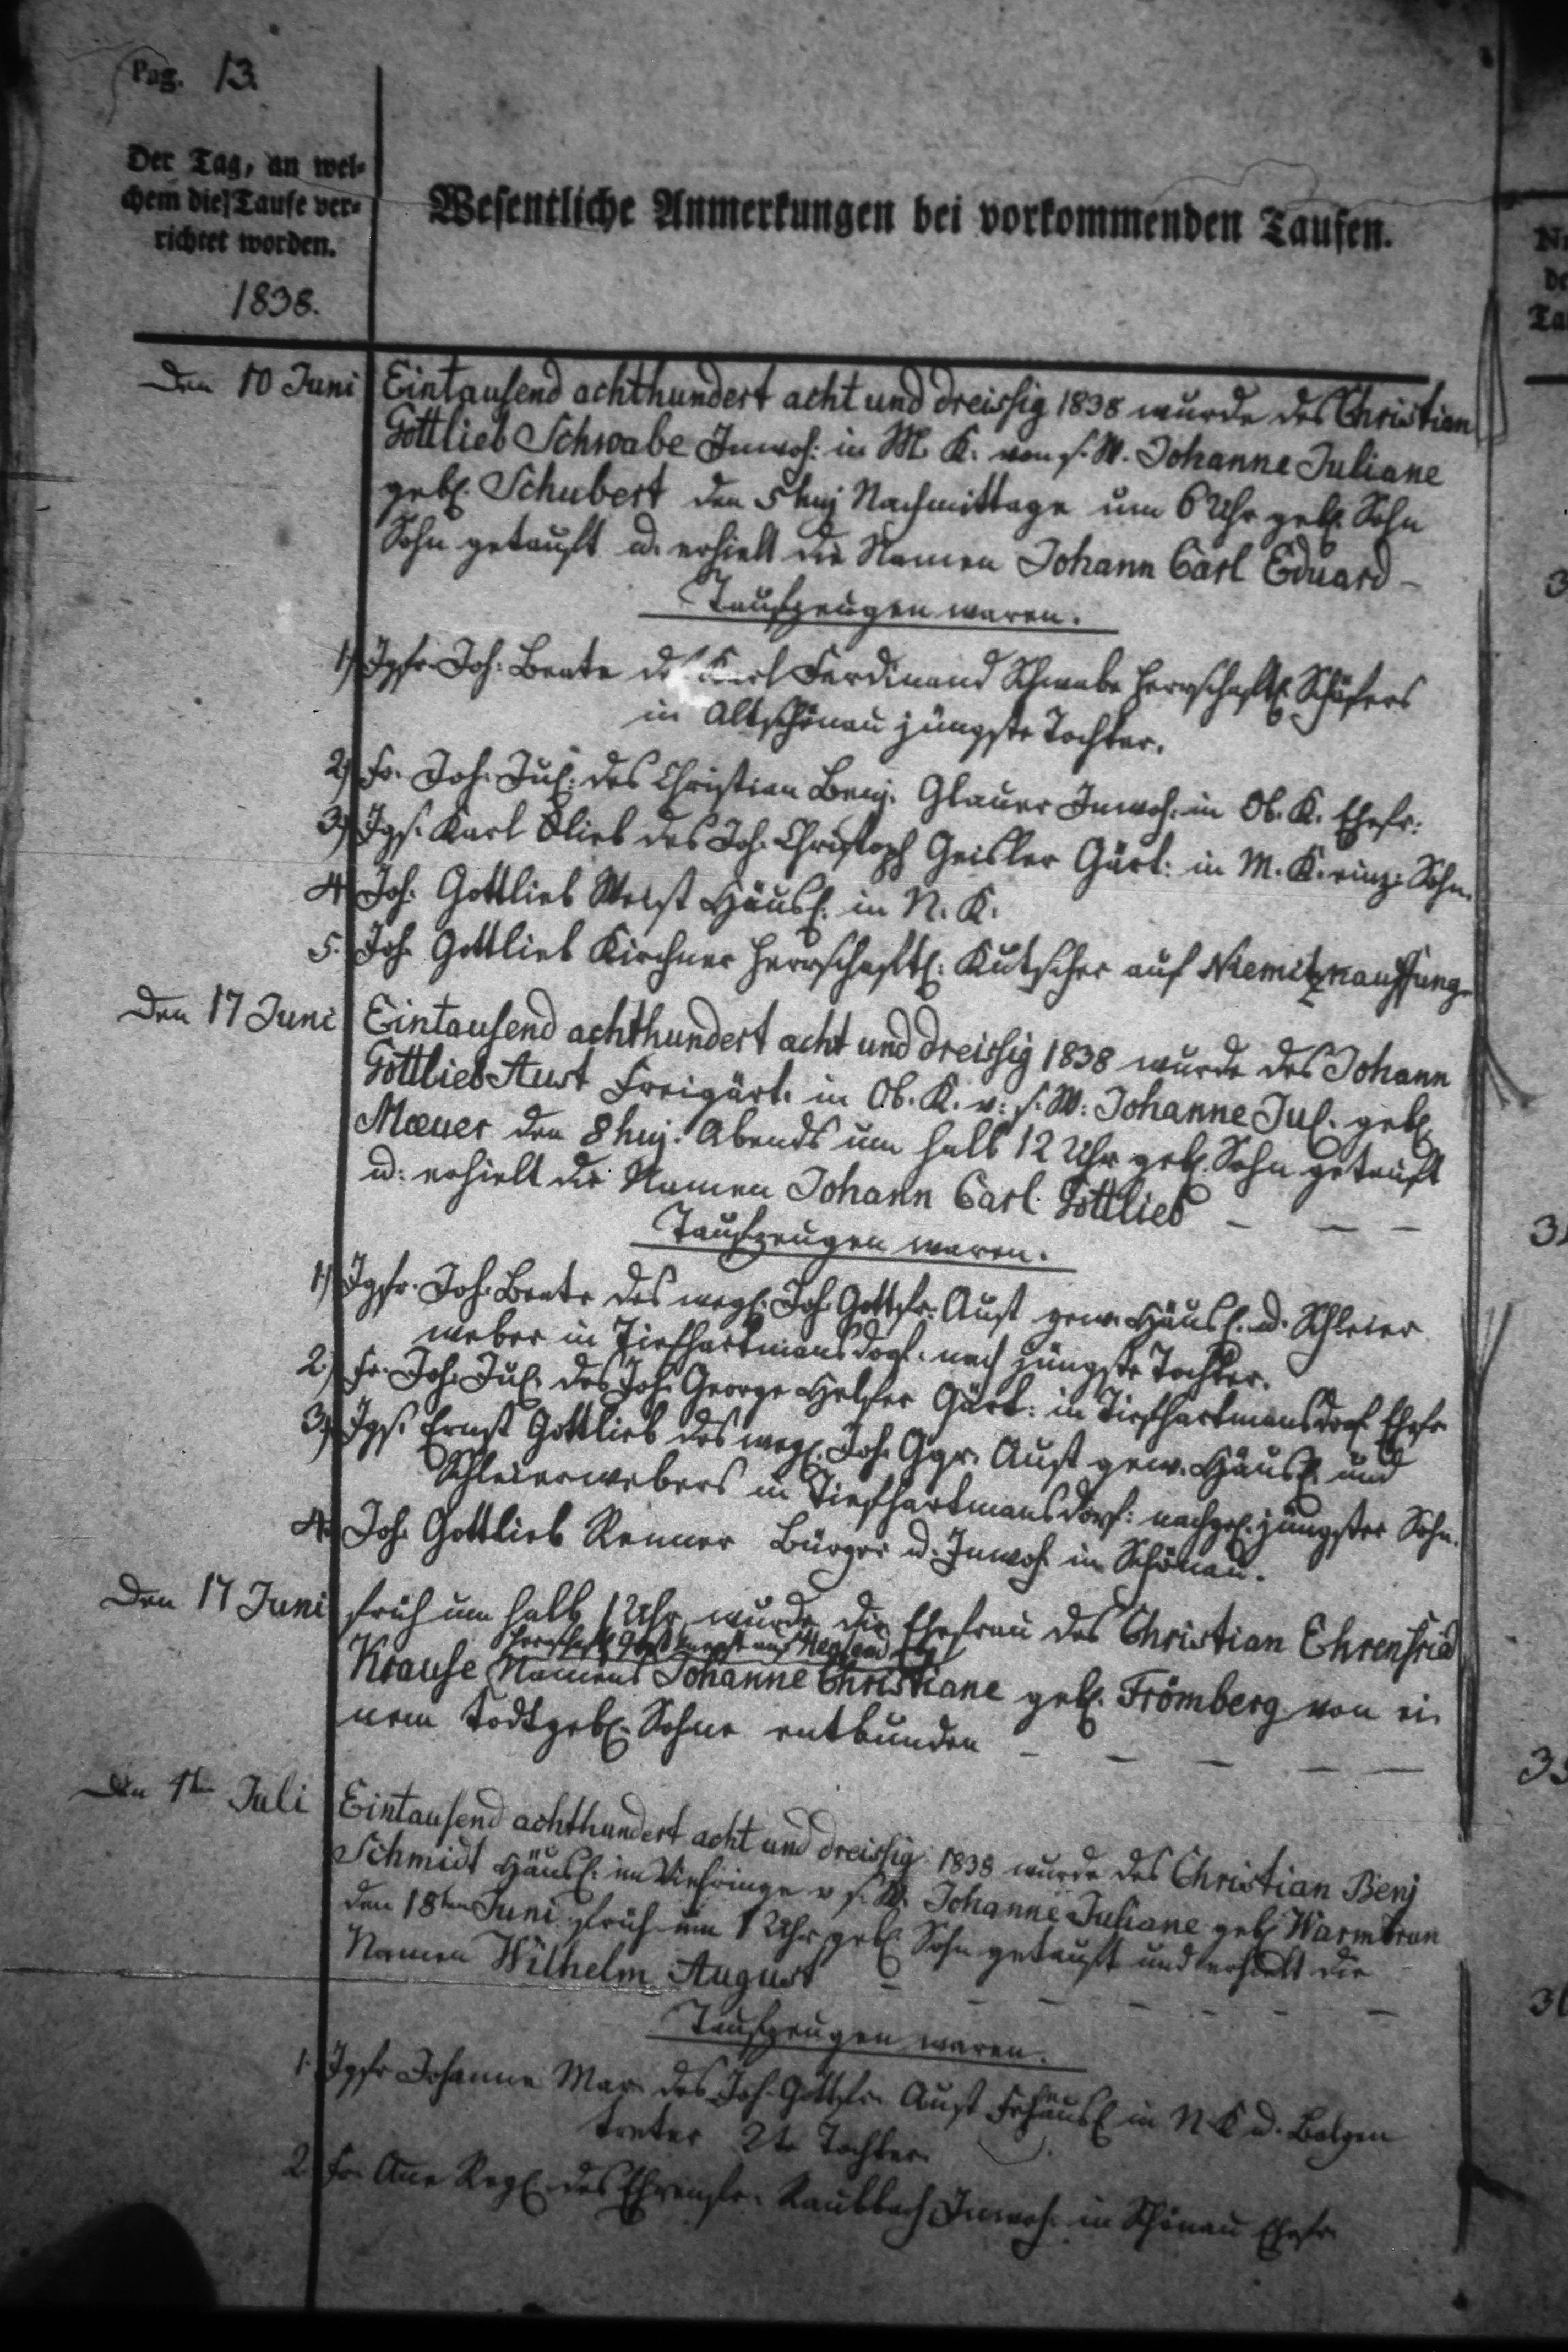 Pag. 13
Der Tag, an wel-
chem die Taufe ver-
richtet worden.
1838.
Wesentliche Anmerkungen bei vorkommenden Taufen.
Den 10 Juni
Eintausend achthundert acht und dreissig 1838 wurde des Christian
Gottlieb Schwabe Inwoh: in M. K. von s. W. Johanne Juliane
gebl. Schubert den 5 huj Nachmittags um 6 Uhr gebl. Sohn
Sohn getauft u. erhielt die Namen Johann Carl Eduard –
Taufzeugen waren.
1) Jgfr. Joh: Beate des Karl Ferdinand Schwabe herrschaftl. Schäfers
in Altschönau jüngste Tochter.
2) Fr. Joh. Jul: des Christian Benj. Glauer Inwoh. in Ob. K. Ehefr:
3) Jgs. Karl Glieb des Joh. Christoph Geisler Gärt: in M. K. einz: Sohn.
4 Joh. Gottlieb Weist Häusl. in N. K.
5. Joh. Gottlieb Kirchner herrschaftl: Kutscher auf Niemitzkauffung
Den 17 Juni
Eintausend achthundert acht und dreissig 1838 wurde des Johann
Gottlieb Aust Freigärt. in Ob. K. v: s. W: Johanne Jul. gebl
Mæuer den 8 huj. Abends um halb 12 Uhr gebl. Sohn getauft
u: erhielt die Namen Johann Carl Gottlieb – – –
Taufzeugen waren.
1) Jgfr. Joh. Beate des wegl. Joh. Gottfr. Aust gew. Häusl. u. Schleier
weber in Tiefhartmansdorf. nach jüngste Tochter.
2) Fr. Joh. Jul. des Joh. George Helfer Gärt: in Tiefhartmansdorf Ehefr
3) Jgs. Ernst Gottlieb des wegl. Joh. Ggr. Aust gew. Häusl. und
Schleierwebers in Tiefhartmansdorf: nachgel. jüngster Sohn.
4. Joh. Gottlieb Renner Bürger u. Inwoh. in Schönau.
Den 17 Juni
früh um halb 1 Uhr wurde die Ehefrau des Christian Ehrenfried
herrschaftl.
Krause Namens Johanne Christiane gebl. Frömberg von ei
nem todtgebl. Sohne entbunden – – – – –
Den 1ten Juli
Eintausend achthundert acht und dreissig 1838 wurde des Christian Benj
Schmidt Häusl. im Viehringe v s. W. Johanne Juliane gebl Warmbrun
den 18ten Juni früh um 1 Uhr gebl Sohn getauft und erhielt die
Namen Wilhelm August – – – – – – –
Taufzeugen waren.
1. Jgfr Johanne Mar. des Joh. Gottfr. Aust Frhäusl in N K u. Balgen
treter 2te Tochter
2 Fr. Ane Regl. des Ehrenfr. Raubbach Inwoh. in Schönau Ehefr